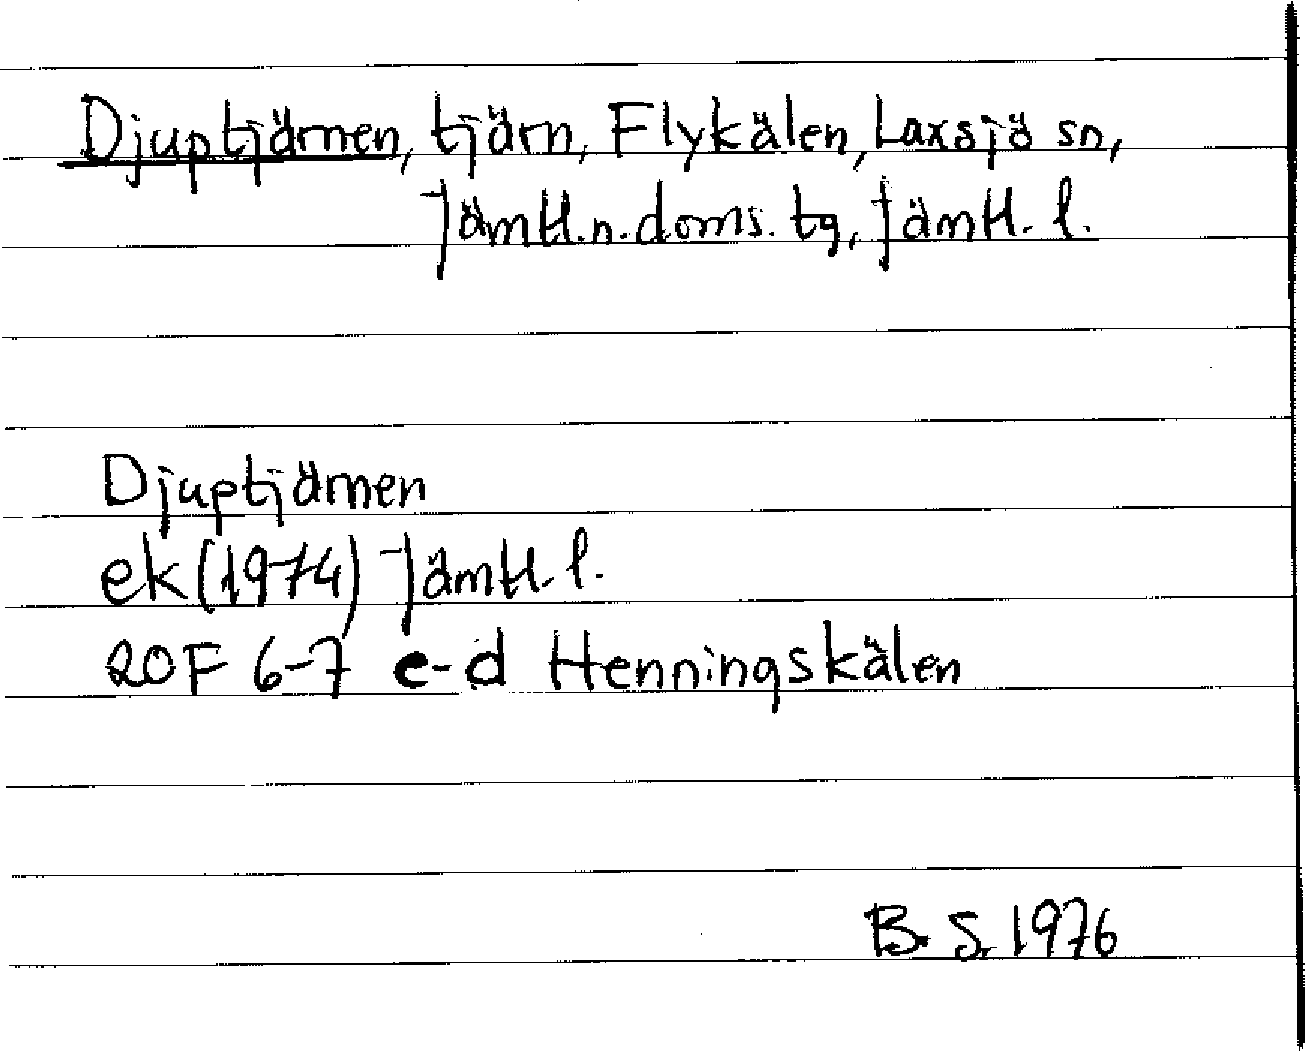 Djuptjärnen, tjärn, Flykälen, Laxsjö sn,
Jämtl.n.doms. tg, Jämtl. l.
Djuptjärnen
ek (1974) Jämtl. l.
20F 6-7 c-d Henningskälen
B. S. 1976